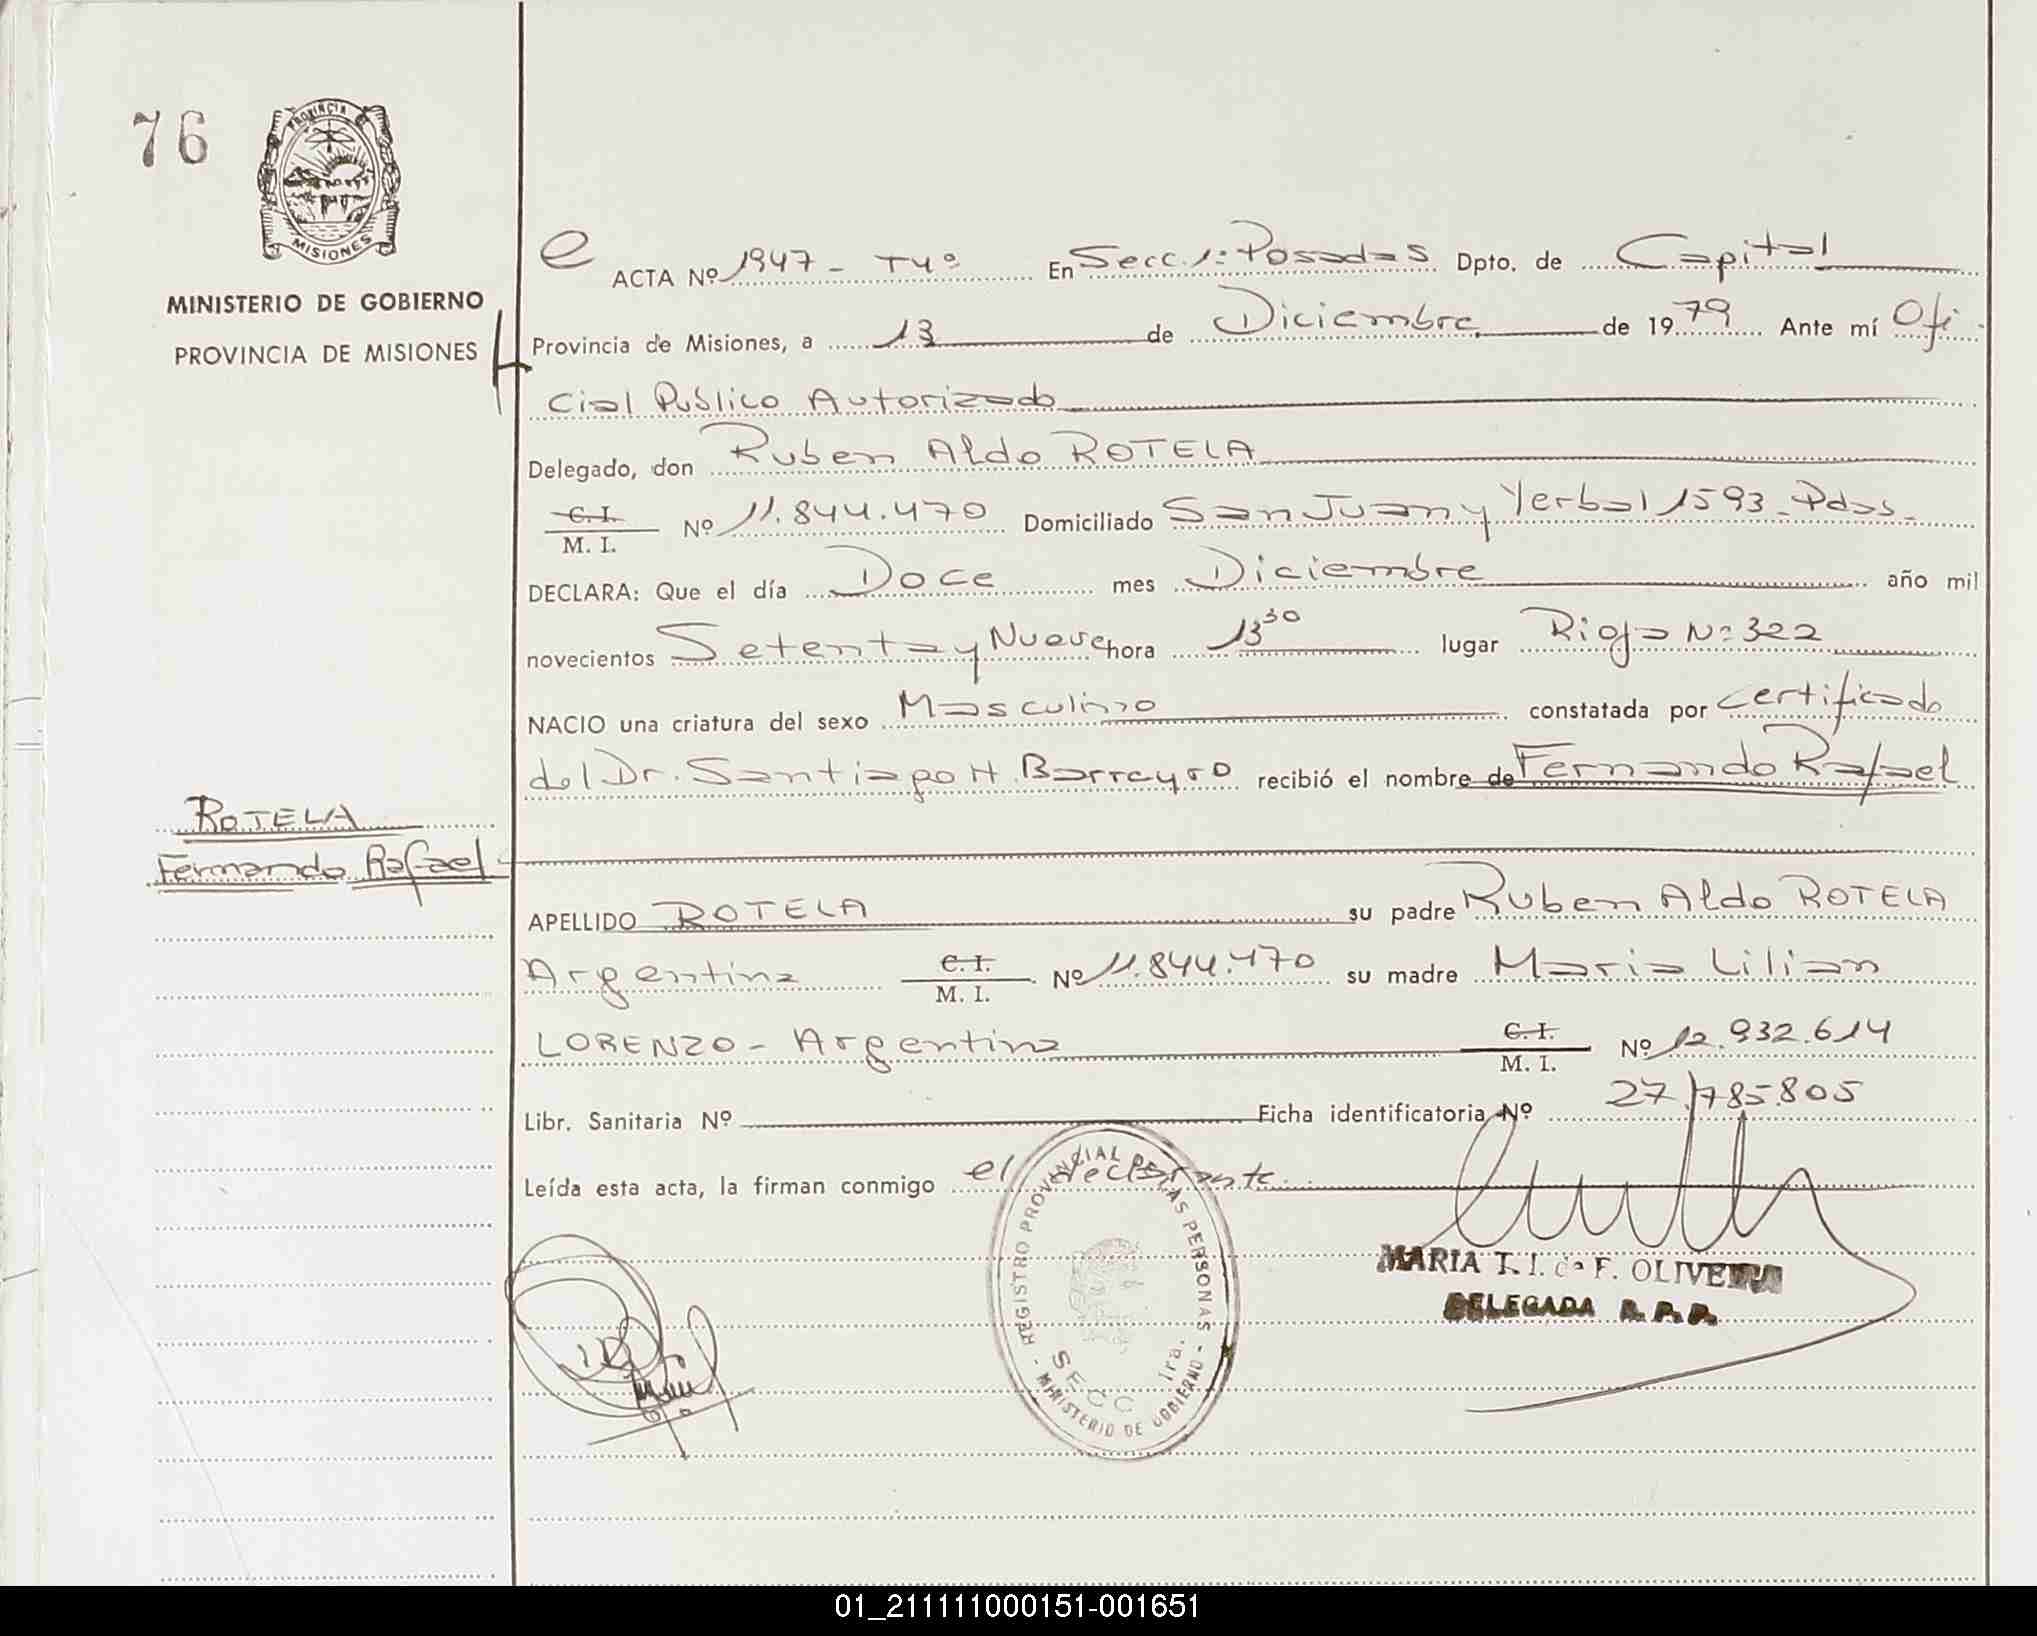 76
PROVINCIA
MISIONES
MINISTERIO DE GOBIERNO
PROVINCIA DE MISIONES
e ACTA Nº 1947 - Tº 4º En Secc. 1: Posadas Dpto. de Capital
Provincia de Misiones, a 13 de Diciembre de 1979 Ante mí Ofi-
cial Publico Autorizado
Delegado, don Ruben Aldo ROTELA
C. I.
M. I. Nº 11.844.470 Domiciliado San Juan y Yerbal 1593 - Pdas -
DECLARA: Que el día Doce mes Diciembre año mil
novecientos Setenta y Nueve hora 13 30 lugar Rioja Nº 322
NACIO una criatura del sexo Masculino constatada por certificado
del Dr. Santiago H. Barreyro recibió el nombre de Fernando Rafael
ROTELA
Fernando Rafael
APELLIDO ROTELA su padre Ruben Aldo ROTELA
Argentina C. I. M. I. Nº 11.844.470 su madre Maria Lilian
LORENZO - Argentina C. I. M. I. Nº 12.932.614
Libr. Sanitaria Nº Ficha identificatoria Nº 27.785.805
Leída esta acta, la firman conmigo el declarante.
REGISTRO PROVINCIAL DE LAS PERSONAS
SECC 1ra.
- MINISTERIO DE GOBIERNO -
MARIA T. I. de F. OLIVEIRA
DELEGADA R. P. P.
01_211111000151-001651